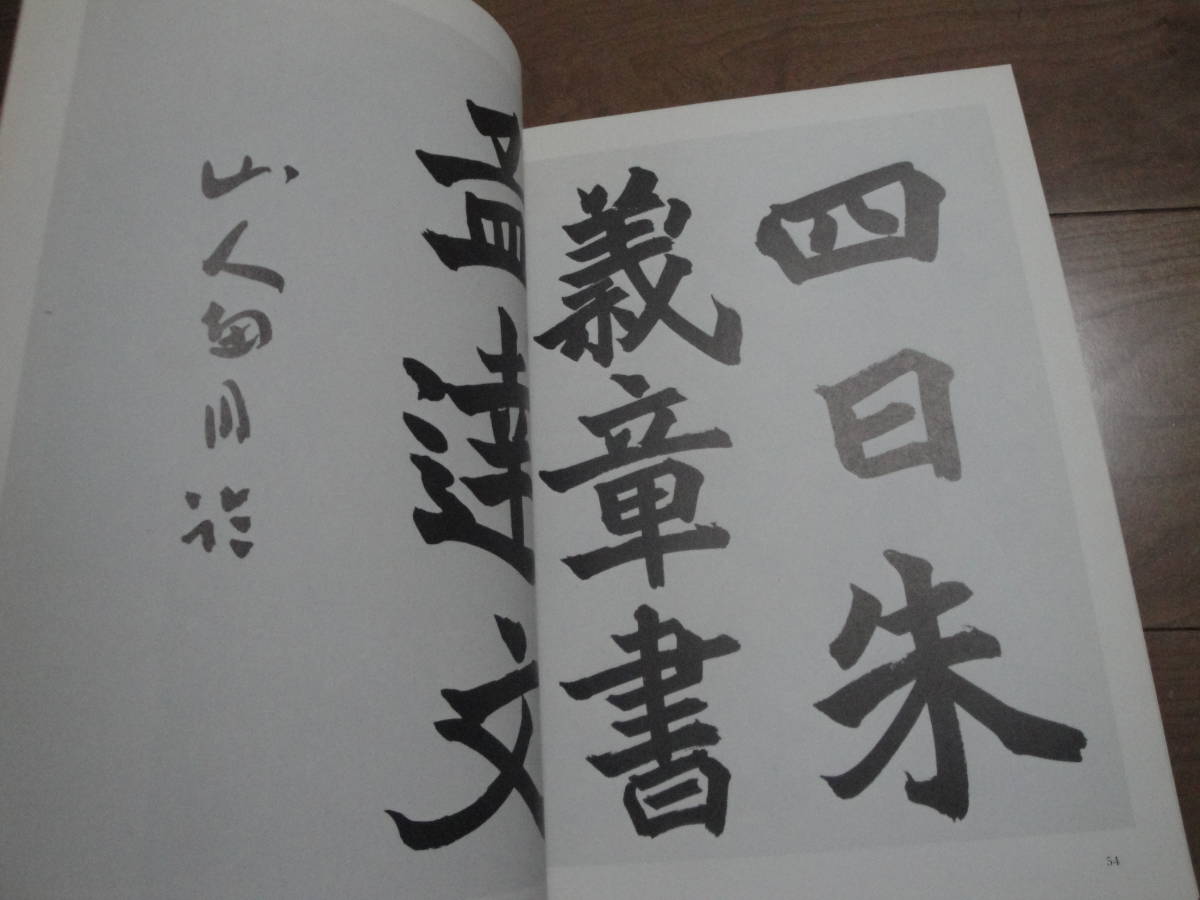 四日朱
義章書
孟達文
山人
54